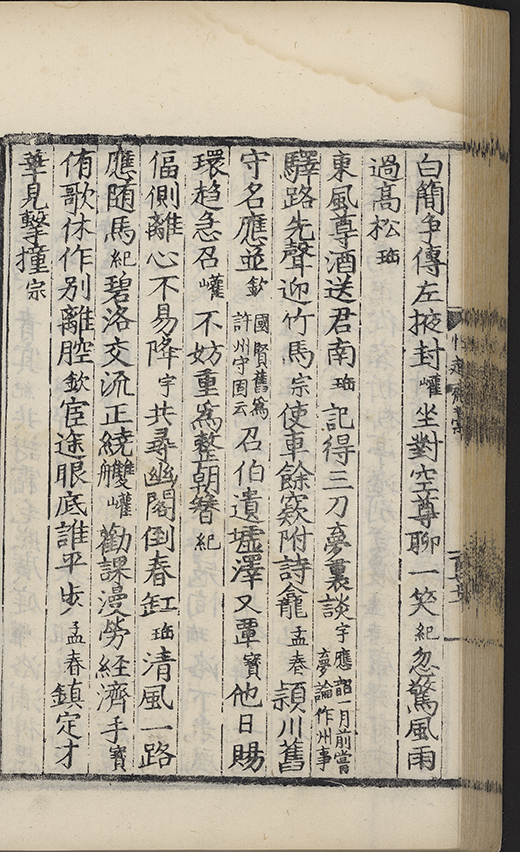 白簡爭傳左掖封巏坐對空尊聊一笑紀忽驚風雨
過高松珤
東風尊酒送君南珤記得三刀夢裏談宇應詔一月前嘗夢論作州事
驛路先聲迎竹馬宗使車餘窾附詩龕孟奏潁川舊
守名應並欽國賢舊爲許州守固云召伯遺墟澤又覃寳他日賜
環趋急召巏不妨重爲整朝簪紀
偪側離心不易降宇共尋幽閣倒春缸珤清風一路
應随馬紀碧洛交流正繞雙巏勸課漫勞經濟手寳
侑歌休作别離腔欽宦途眼底誰平步孟春鎮定才
華見擊撞宗